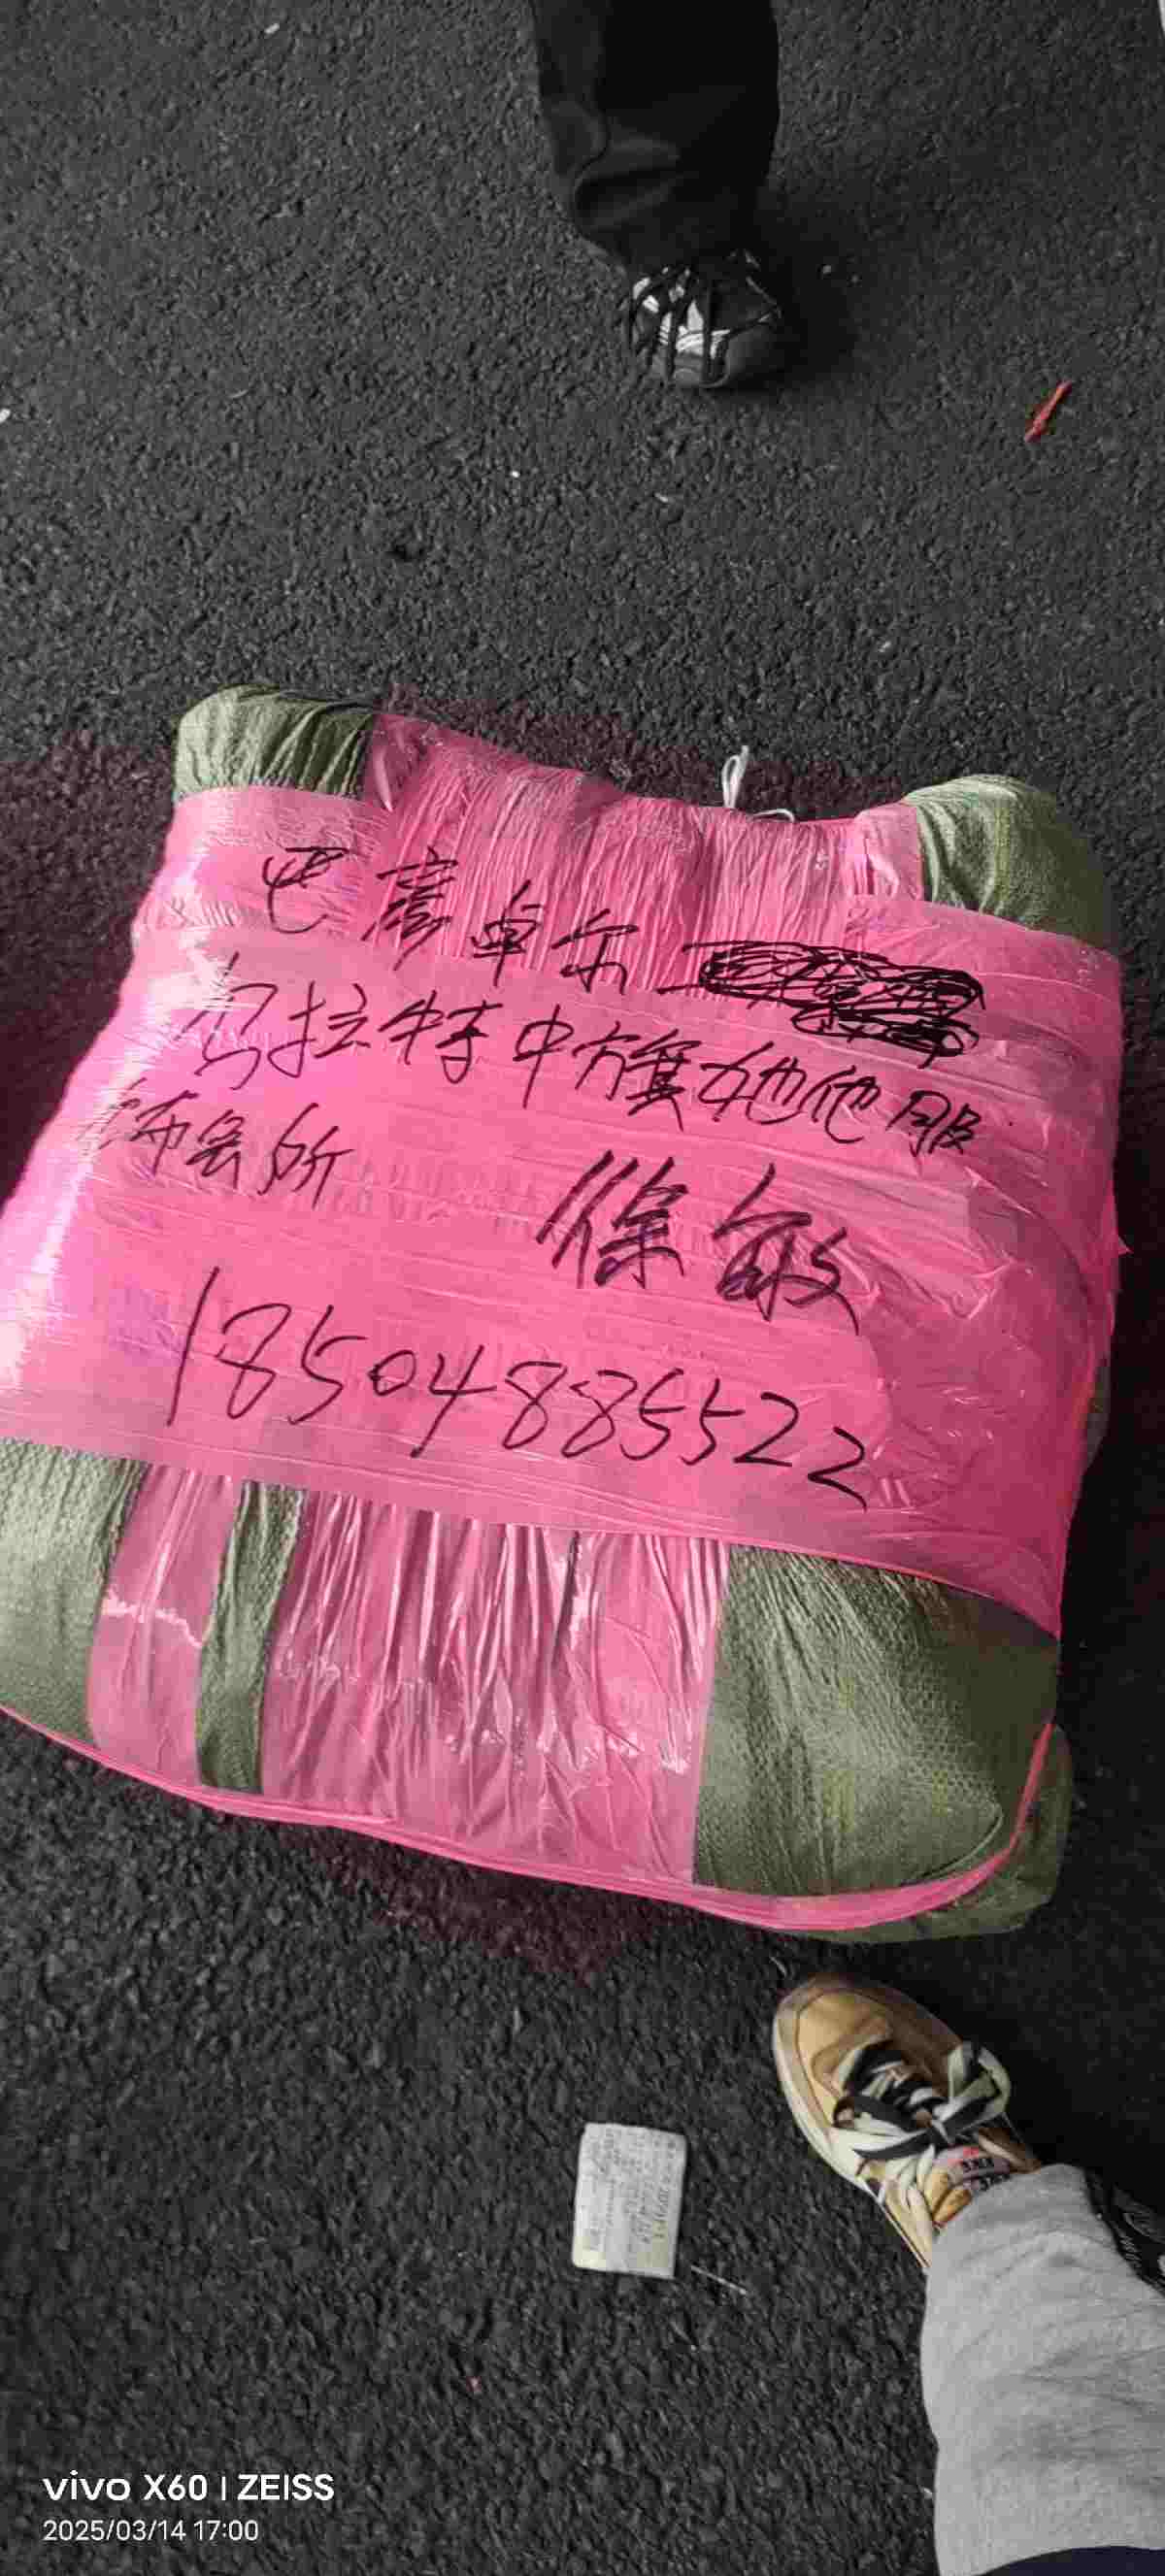 巴彦卓尔
乌拉特中旗她他服
饰会所 徐敏
18504885522
vivo X60 | ZEISS
2025/03/14 17:00